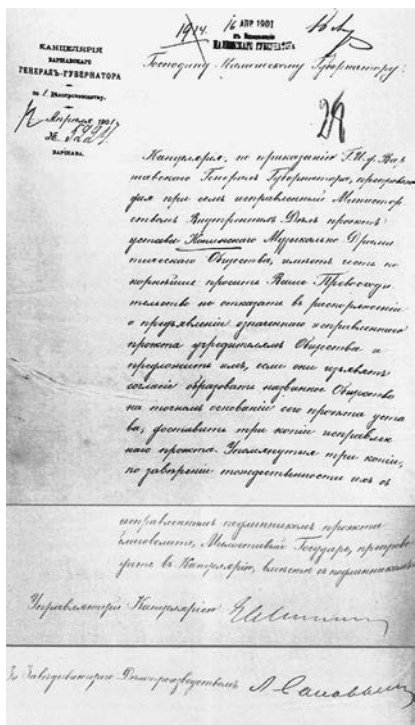 1914. 16 АПР 1901
КАНЦЕЛЯРІЯ
ВАРШАВСКАГО
ГЕНЕРАЛЪ-ГУБЕРНАТОРА
по I Дѣлопроизводству.
12 Апрѣля 1901 г.
№
ВАРШАВА.
КАЛИШСКАГО ГУБЕРНАТОРА
Господину Калишскому Губернатору.
Канцелярія, по приказанію Г. И. д. Вар
шавскаго Генералъ Губернатора, препровож
дая при семъ исправленный Министер
ствомъ Внутреннихъ Дѣлъ проектъ
устава Конинскаго Музыкально Драма
тическаго Общества, имѣетъ честь по
корнѣйше просить Ваше Превосходи
тельство не отказать въ распоряженіи
о предъявленіи означеннаго исправленнаго
проекта учредителямъ Общества и
предложить имъ, если они изъявятъ
согласіе образовать названное Общество
на точномъ основаніи сего проекта уста
ва, доставить три копіи исправлен
наго проекта. Упомянутыя три копіи,
по завѣреніи тождественности ихъ съ
исправленнымъ подлинникомъ проекта
благоволите, Милостивый Государь, препрово
дить въ Канцелярію, вмѣстѣ съ подлинникомъ.
Управляющій Канцеляріею
За Завѣдывающаго Дѣлопроизводствомъ